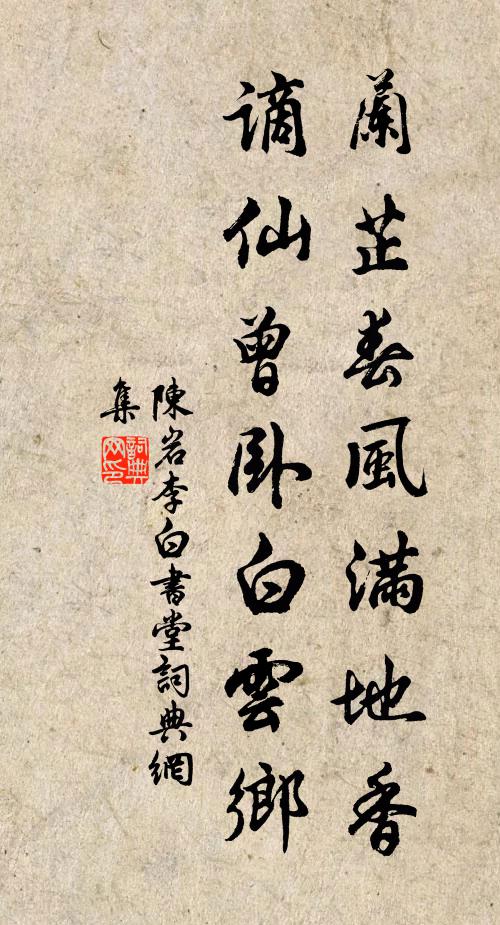 蘭芷春風滿地香
謫仙曾卧白雲鄉
陳岩李白書堂詞典網
集
詞典
网印